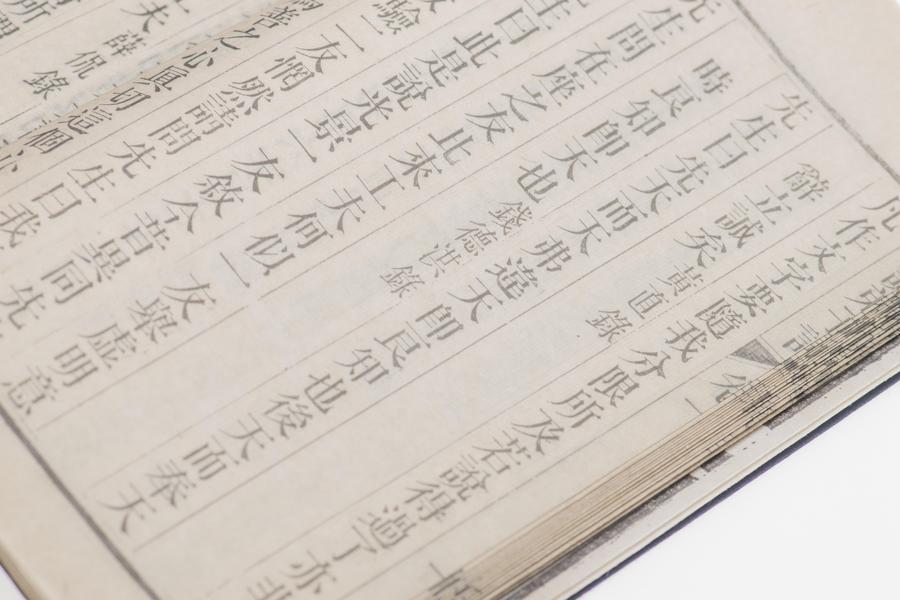 凡作文字要隨我分限所及若說得過了亦
辭立誠矣 黃直錄
先生曰先天而天弗違天即良知也後天而奉天
時良知即天也 錢德洪錄
先生問在座之友此來工夫何似一友舉虛明意
生曰此是說光景一友敘今昔異同先
驗二友惘然請問先生曰我
善之心真切這個心
夫 薛侃錄